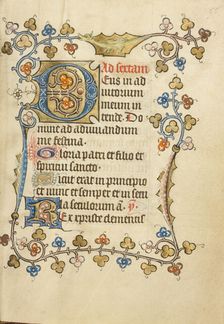 Ad sextam
Deus in ad
iutorium
meum in
tende. Do
mine ad adiuuandum
me festina.
Gloria patri et filio et
spiritui sancto.
Sicut erat in principio
et nunc et semper et in se
cula seculorum a.
Rex christe clemens